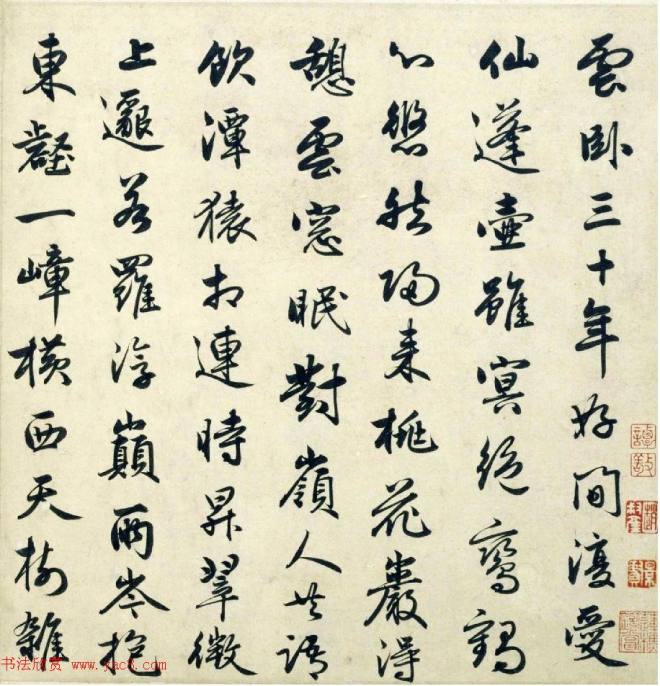 雲卧三十年好間復愛
仙蓬壺雖冥絶鸞鶴
心悠然歸来桃花巖得
憩雲窓眠對嶺人共語
飲潭猿相連時昇翠微
上邈若羅浮巔兩岑抱
東壑一嶂横西天樹雜
书法欣赏 www.yac8.com